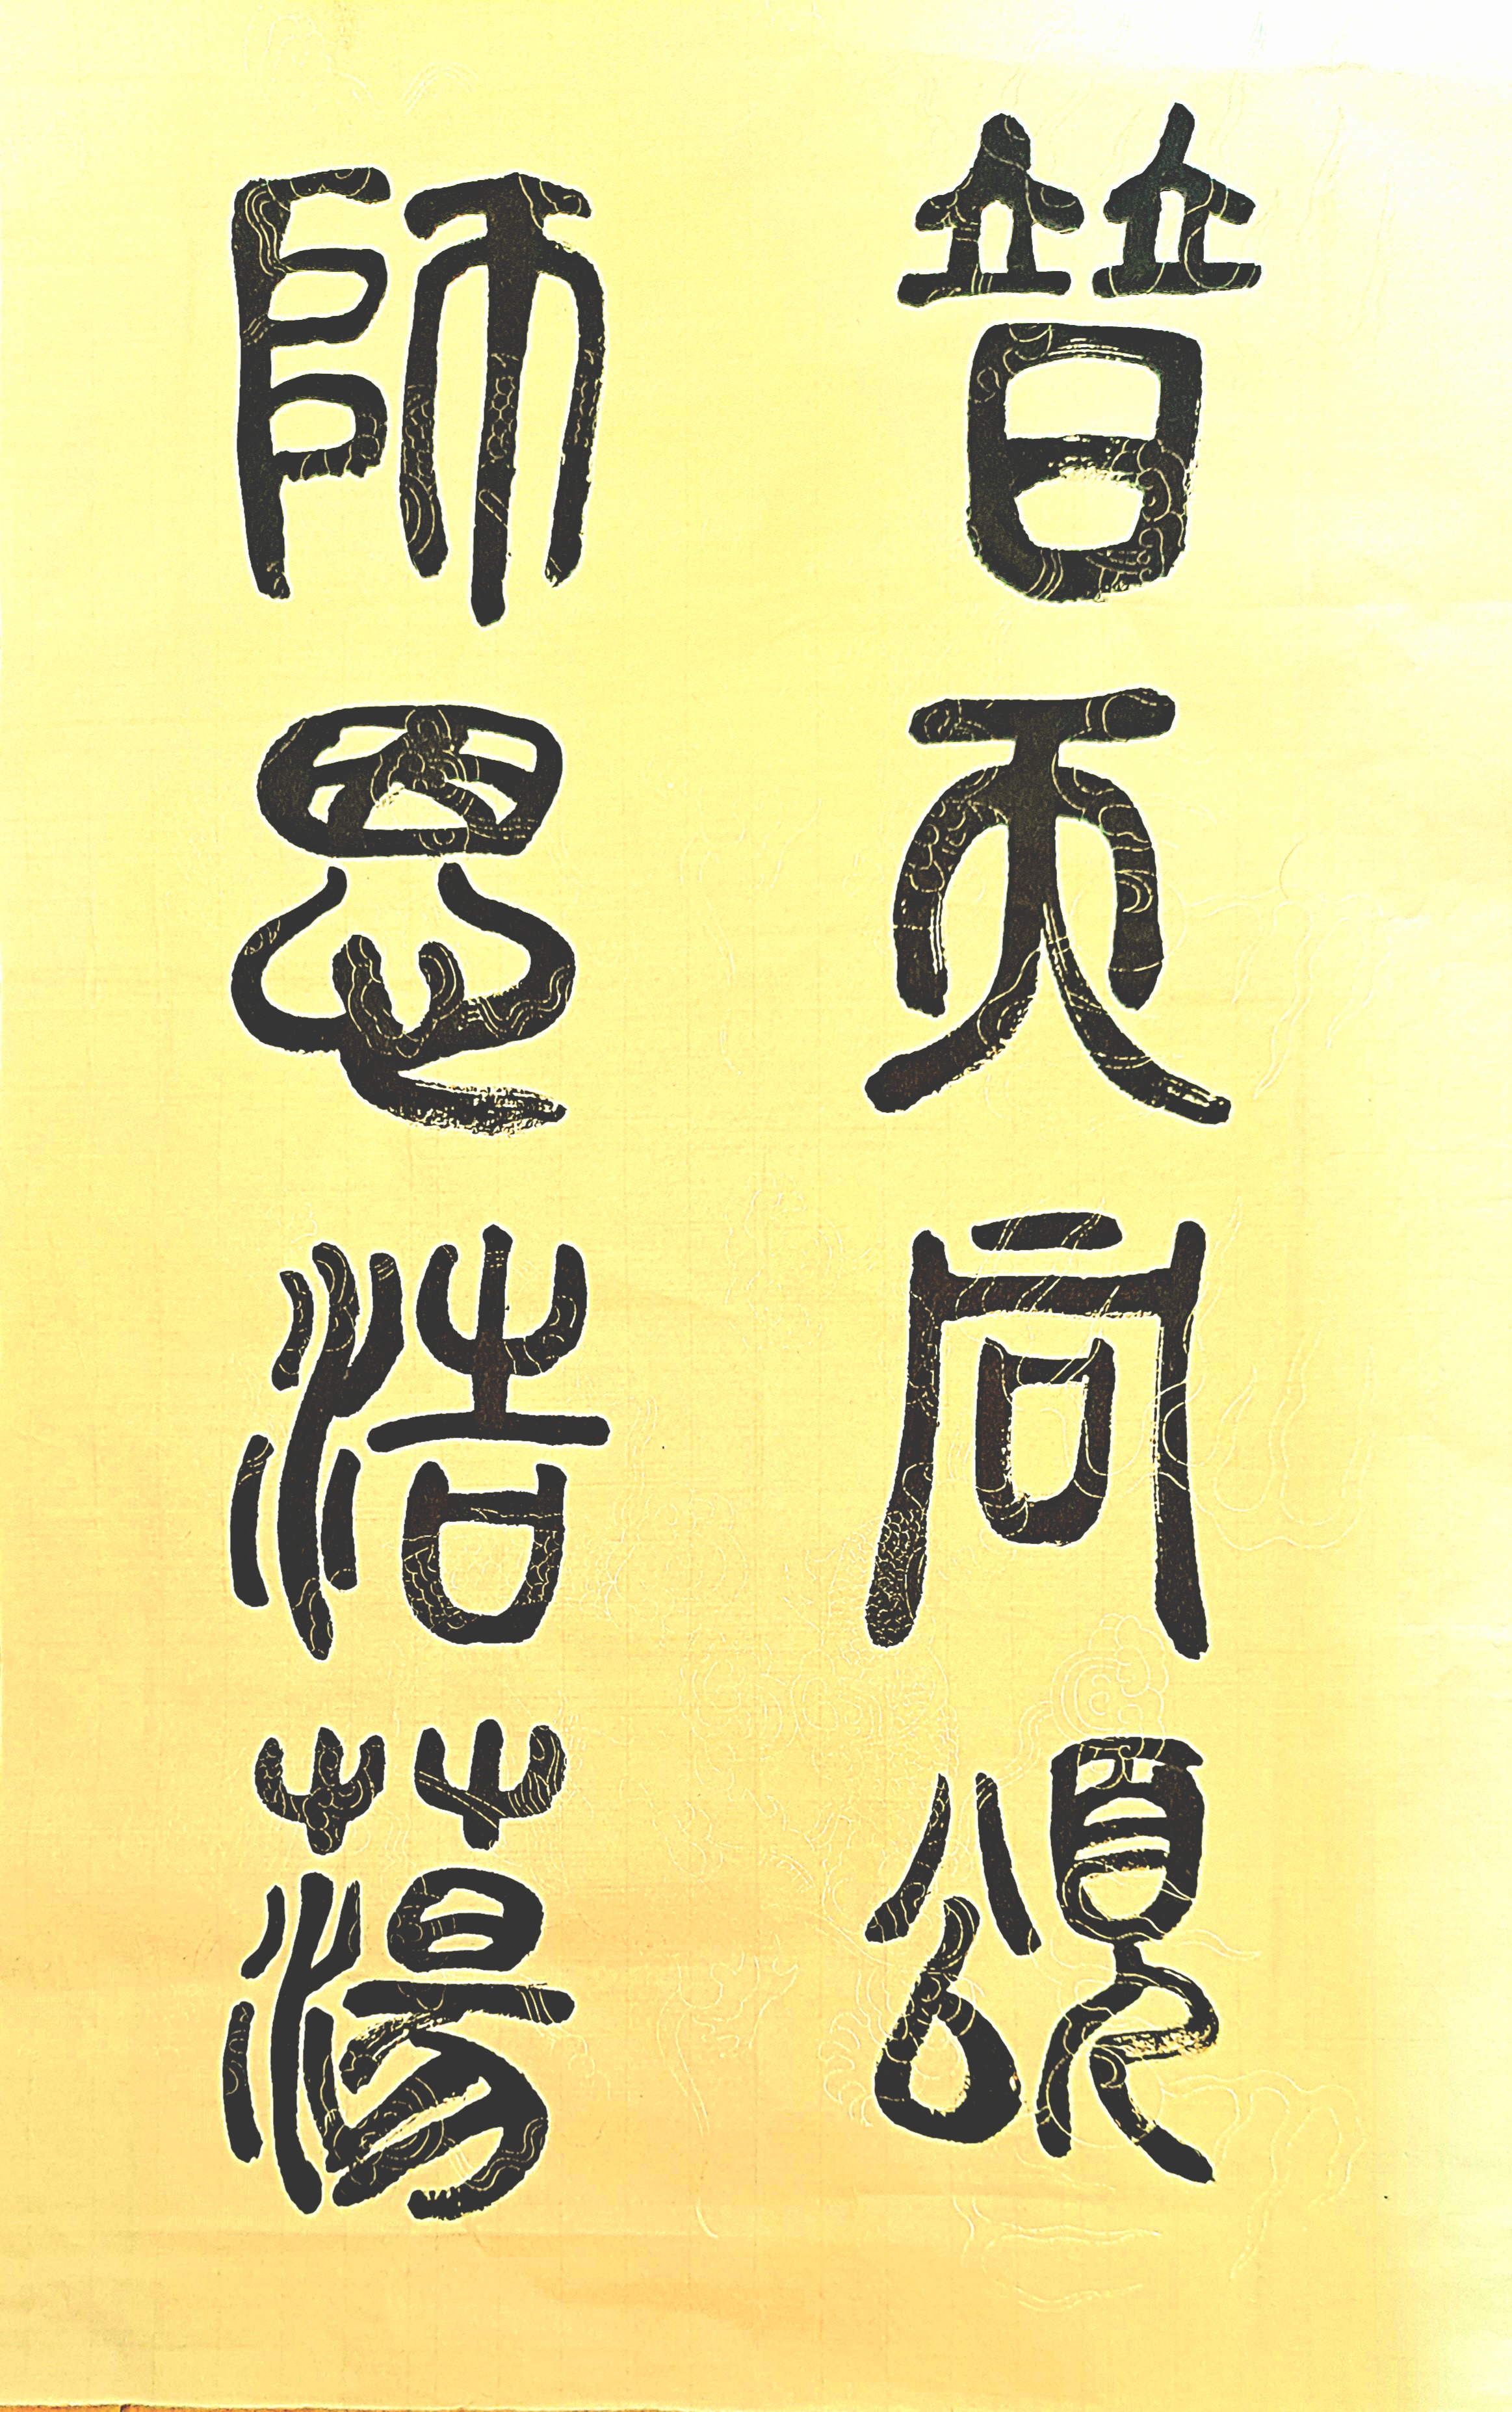 普天同頌
師恩浩蕩